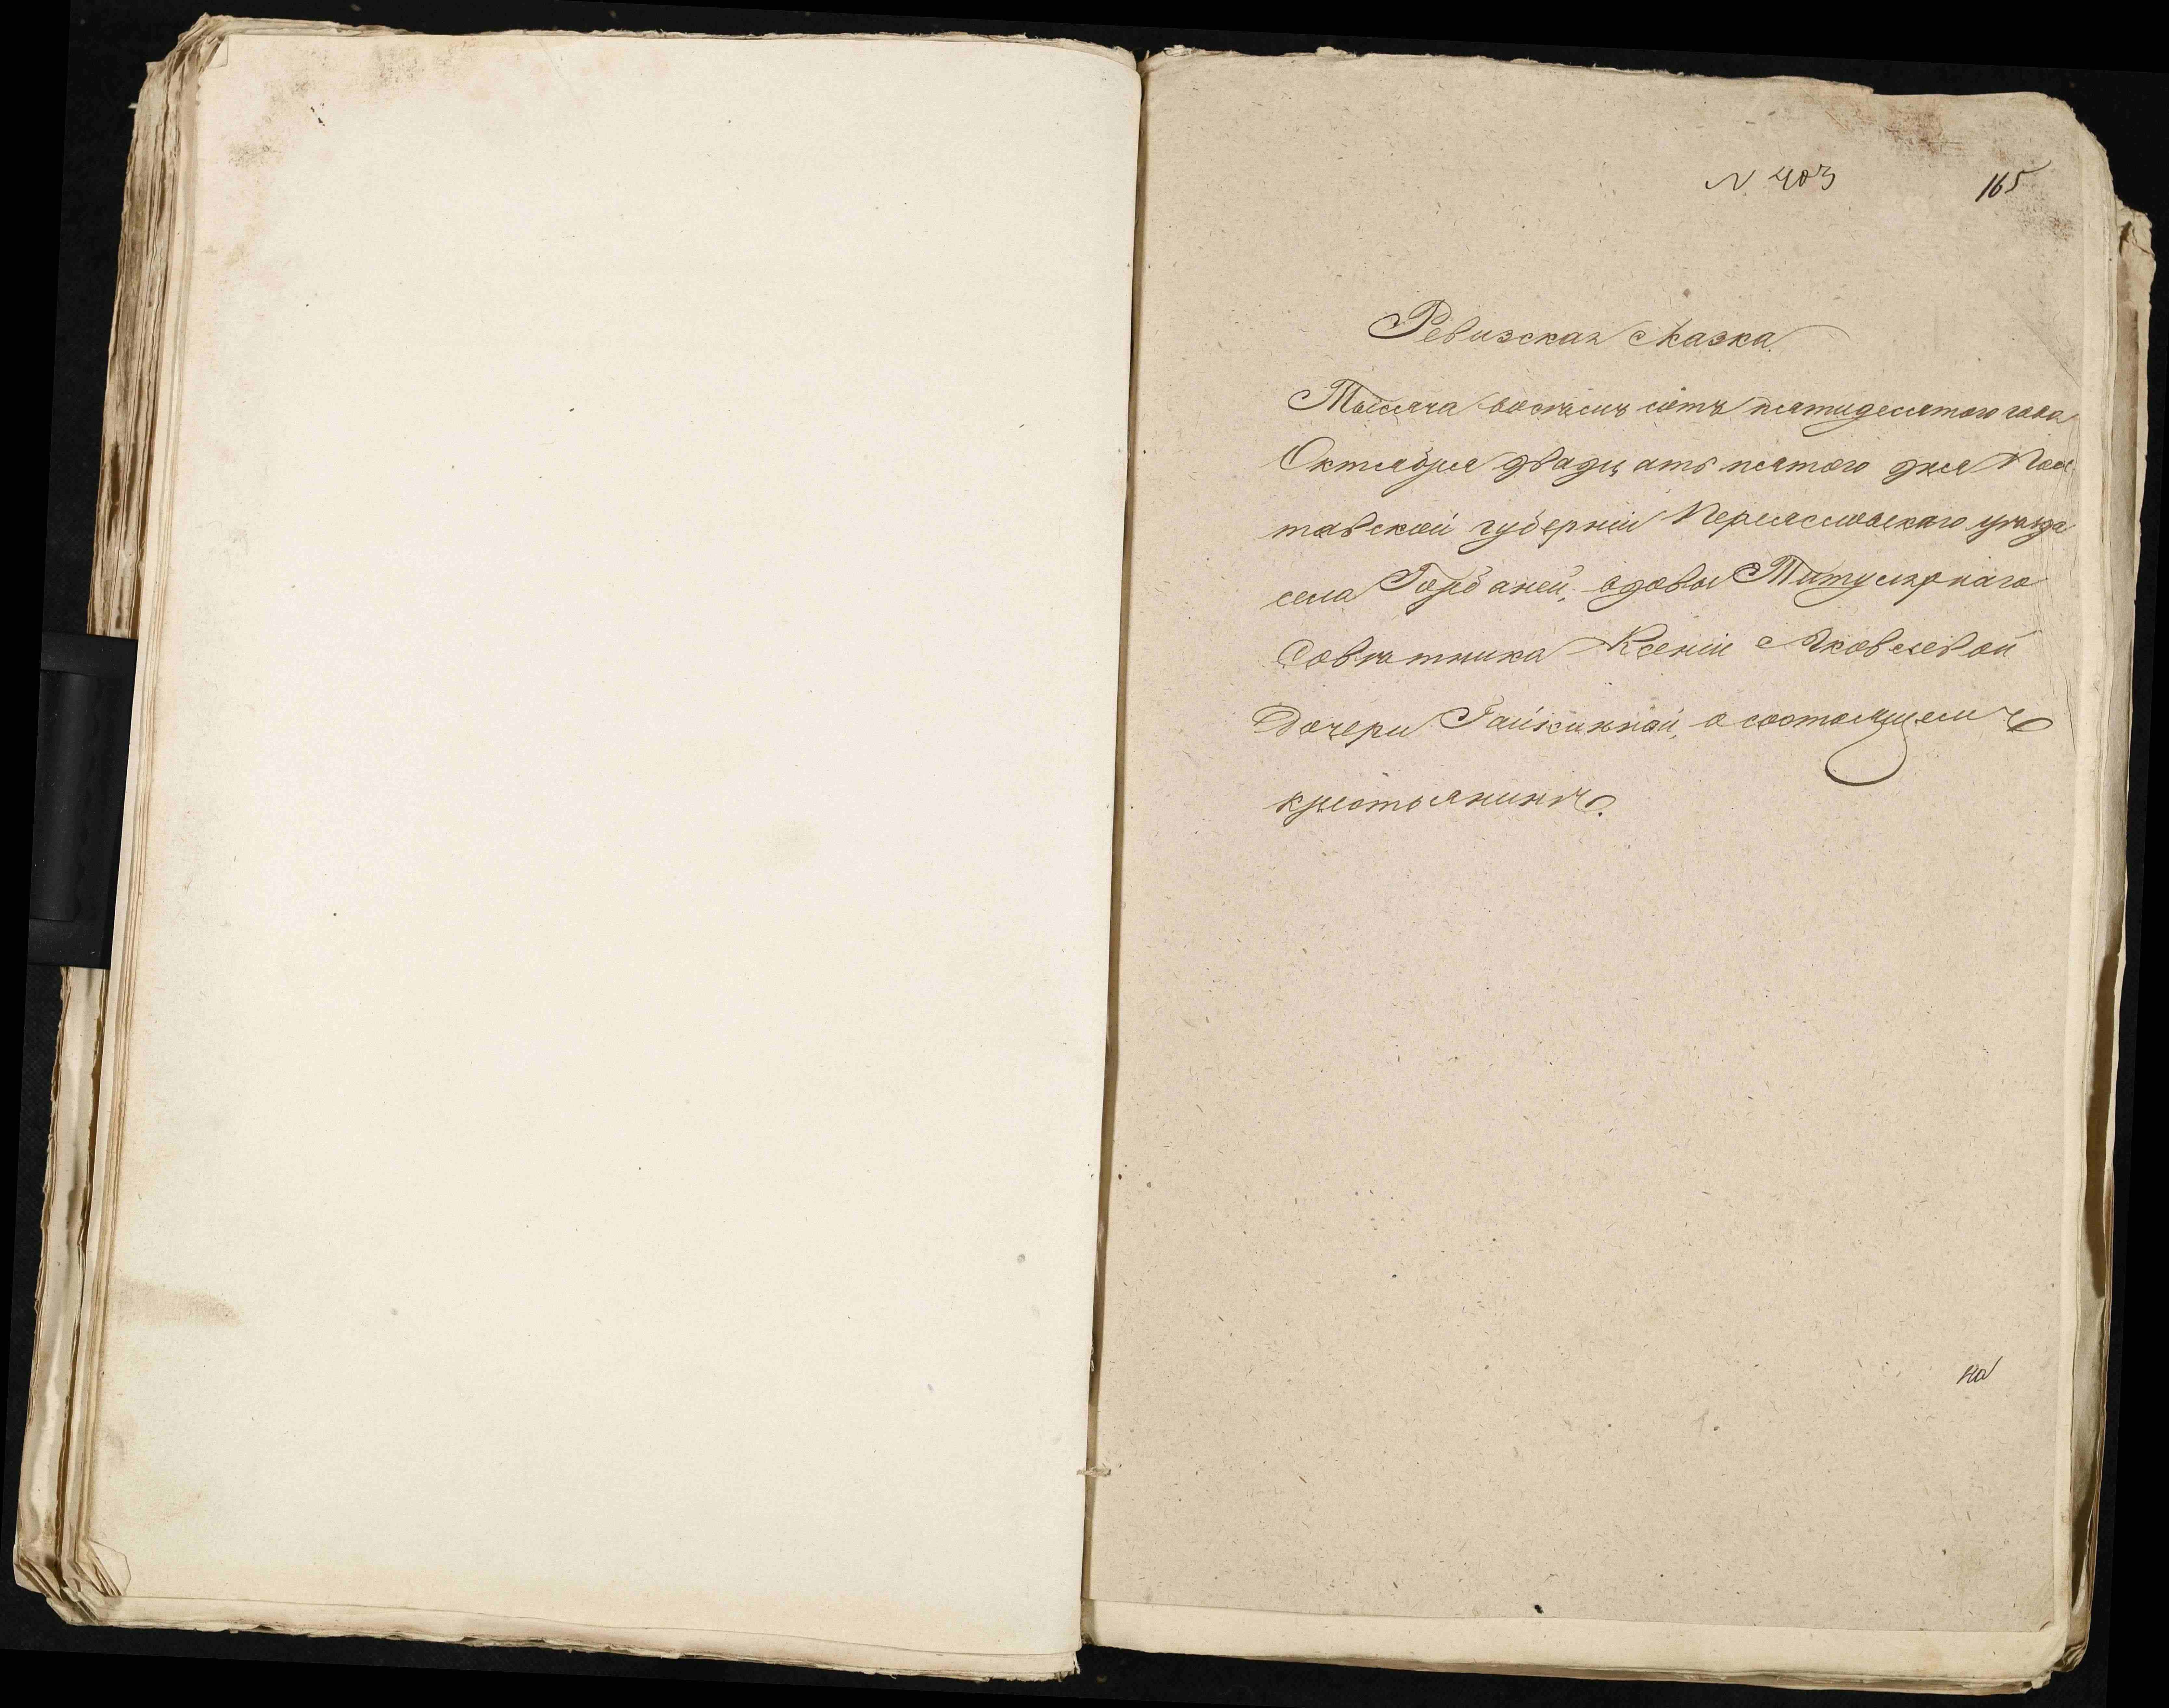 N 403
165
Ревизская сказка.
Тысяча восемь сотъ пятидесятого года
Октября двадцать пятого дня Пол
тавской губерніи Переясловскаго уѣзда
села Горбаней, вдовы Титулярнаго
Совѣтника Ксеніи Яковлевой
Дочери о состоящемъ
крестьянинѣ.